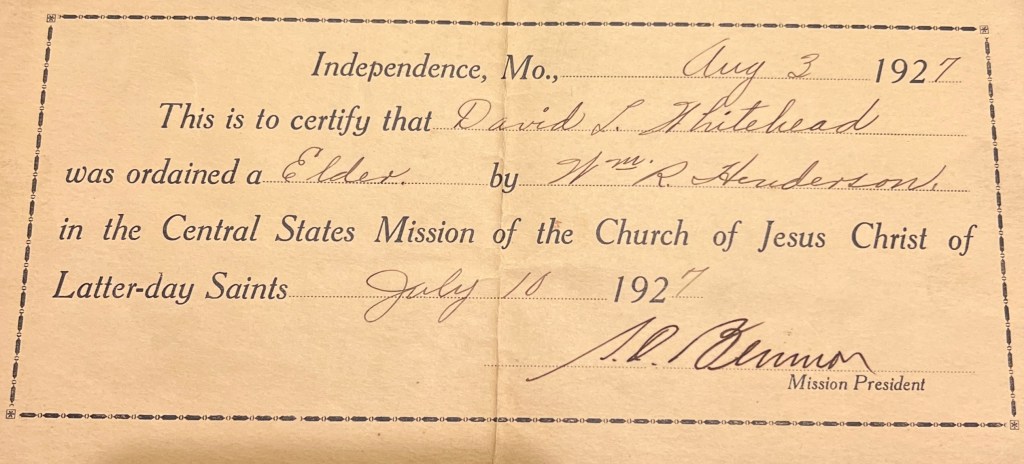 Independence, Mo., Aug 3 1927
This is to certify that David L. Whitehead
was ordained a Elder. by Wm. R. Henderson.
in the Central States Mission of the Church of Jesus Christ of
Latter-day Saints July 10 1927
S. O. Bennion
Mission President